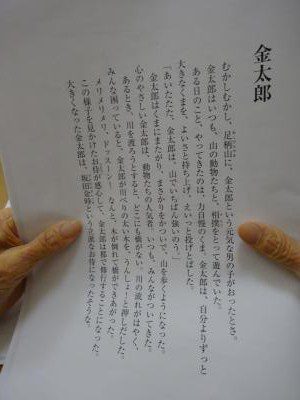 金太郎
むかしむかし、足柄山に、金太郎という元気な男の子がおったとさ。
金太郎はいつも、山の動物たちと、相撲をとって遊んでいた。
ある日のこと、やってきたのは、力自慢のくま。金太郎は、自分よりずっと
大きなくまを、よいさと持ちあげ、えいっと投げとばした。
「あいたたた。金太郎は、山でいちばん強いのう。」
金太郎はくまにまたがり、まさかりをかついで、山を歩くようになった。
心のやさしい金太郎は、動物たちの人気者。いつも、みんながついてきた。
あるとき、川を渡ろうとすると、どこにも橋がない。川の流れがはやく、
みんな困っていると、金太郎が川べりの大木を、「うんしょ！」と押しだした。
メリメリメリ、ドッスーン！なんと、木が倒れて橋ができあがった。
この様子を見かけたお侍が感心して、金太郎は都で修行することになった。
大きくなった金太郎は、坂田金時という立派なお侍になったそうな。